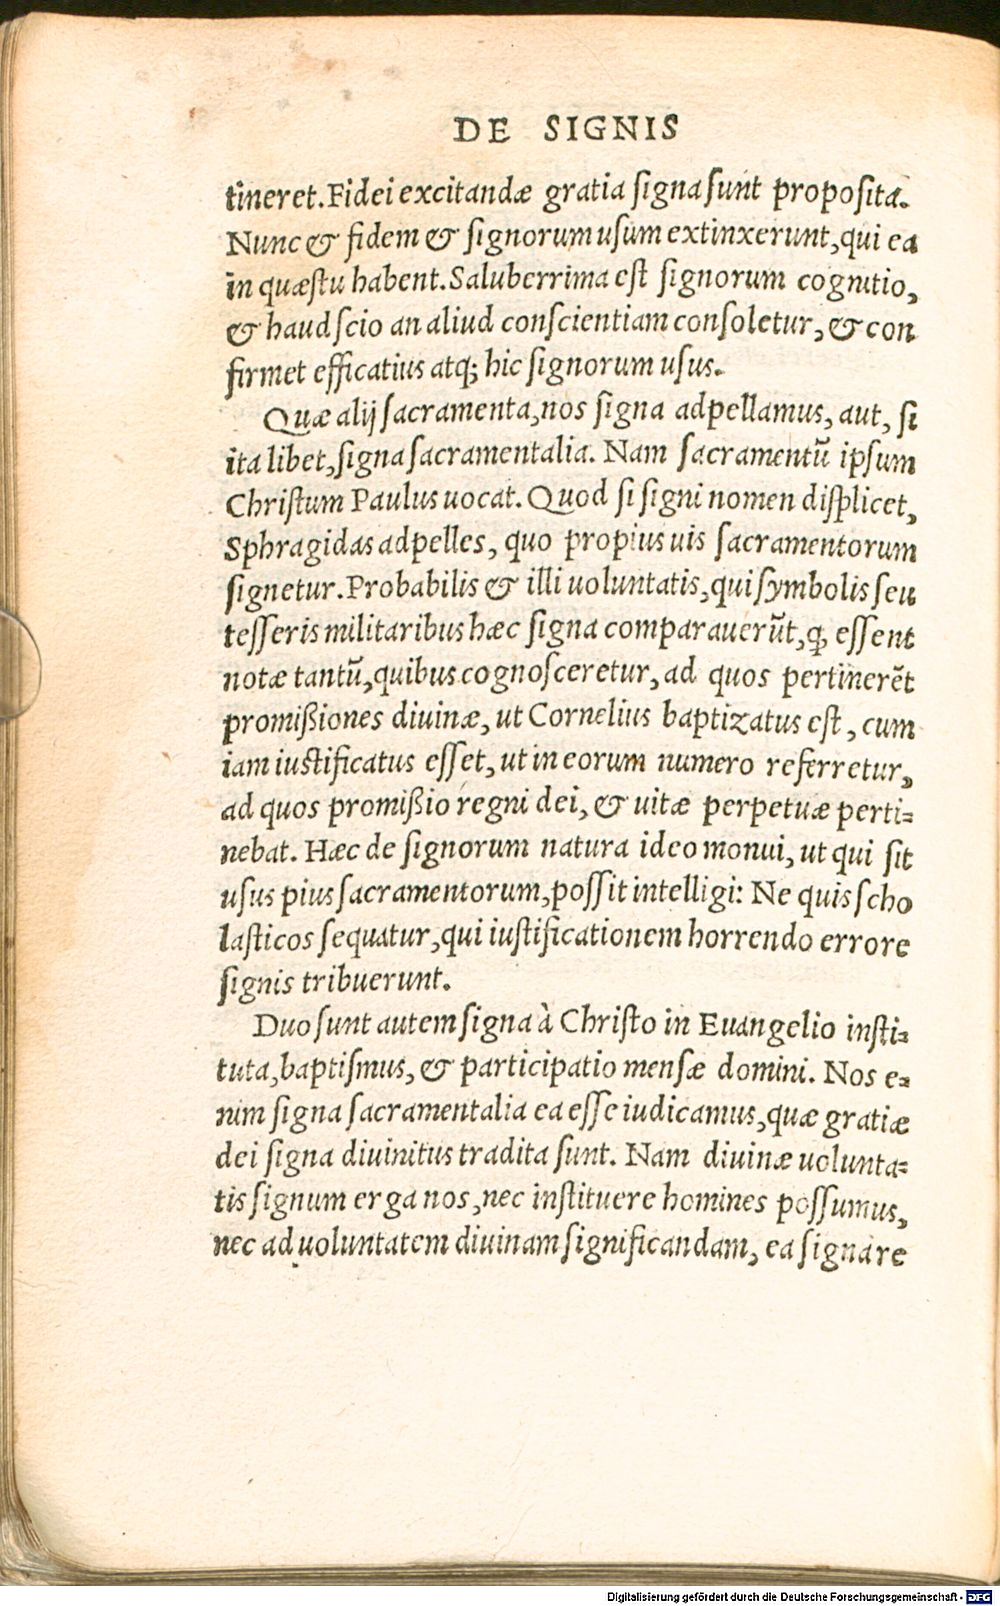 DE SIGNIS
tineret. Fidei excitandæ gratia signa sunt proposita.
Nunc & fidem & signorum usum extinxerunt, qui ea
in quæstu habent. Saluberrima est signorum cognitio,
& haud scio an aliud conscientiam consoletur, & con
firmet efficatius atq; hic signorum usus.
Quæ alij sacramenta, nos signa adpellamus, aut, si
ita libet, signa sacramentalia. Nam sacramentũ ipsum
Christum Paulus uocat. Quod si signi nomen displicet,
Sphragidas adpelles, quo propius uis sacramentorum
signetur. Probabilis & illi uoluntatis, qui symbolis seu
tesseris militaribus hæc signa comparauerũt, ꝙ essent
notæ tantũ, quibus cognosceretur, ad quos pertinerẽt
promißiones diuinæ, ut Cornelius baptizatus est, cum
iam iustificatus esset, ut in eorum numero referretur,
ad quos promißio regni dei, & uitæ perpetuæ perti-
nebat. Hæc de signorum natura ideo monui, ut qui sit
usus pius sacramentorum, possit intelligi: Ne quis scho
lasticos sequatur, qui iustificationem horrendo errore
signis tribuerunt.
Duo sunt autem signa à Christo in Euangelio insti-
tuta, baptismus, & participatio mensæ domini. Nos e-
nim signa sacramentalia ea esse iudicamus, quæ gratiæ
dei signa diuinitus tradita sunt. Nam diuinæ uolunta-
tis signum erga nos, nec instituere homines possumus,
nec ad uoluntatem diuinam significandam, ea signare
Digitalisierung gefördert durch die Deutsche Forschungsgemeinschaft - DFG